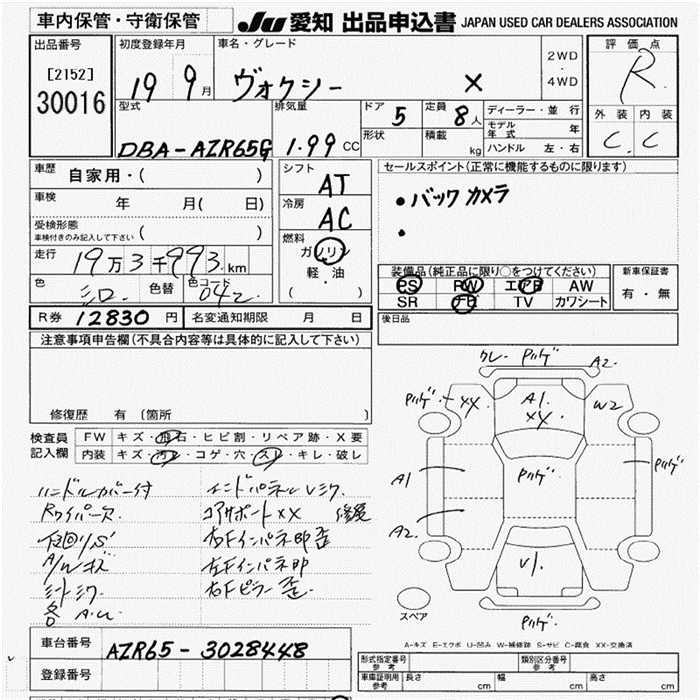 車内保管・守衛保管
JU 愛知 出品申込書 JAPAN USED CAR DEALERS ASSOCIATION
出品番号 初度登録年月 車名・グレード 2WD ・ 4WD 評価点
[2152] 30016 19 9 月 ヴォクシー X R
型式 排気量 ドア 5 定員 8 人 ディーラー・並 行 外装 内装
DBA-AZR65G 1.99 CC 形状 積載 kg モデル年式 年 C C
ハンドル 左・右
車歴 自家用・( ) シフト AT セールスポイント(正常に機能するものに限ります)
車検 年 月( 日) 冷房 AC ・バックカメラ
受検形態 車検付きのみ記入して下さい ( ) 燃料 ガソリン ・
走行 19万3千993 km 軽・油 装備品(純正品に限り○をつけてください) 新車保証書
色 シロ 色替 色コード 042 ( ) PS PW エアB AW 有・無
SR ナビ TV カワシート
R券 12830 円 名変通知期限 月 日 後日品
注意事項申告欄(不具合内容等は具体的に記入して下さい)
修復歴 有(箇所 )
検査員 FW キズ・飛石・ヒビ割・リペア跡・X要
記入欄 内装 キズ・汚レ・コゲ・穴・スレ・キレ・破レ
ハンドルカバー付
Rワイパー欠 コアサポートXX 修尾
右Fインパネ却 歪
A/Wキズ 左Fインパネ却
右Fピラー歪
各 A.U
A2
XX A1 XX W2
A1
A2
V1
スペア
A-キズ E-エクボ U-凹み W-補修跡 S-サビ C-腐食 XX-交換済
車台番号 AZR65-3028448
登録番号
形式指定番号 参考 類別区分番号 参考
車庫証明用 参考 長さ cm 幅 cm 高さ cm